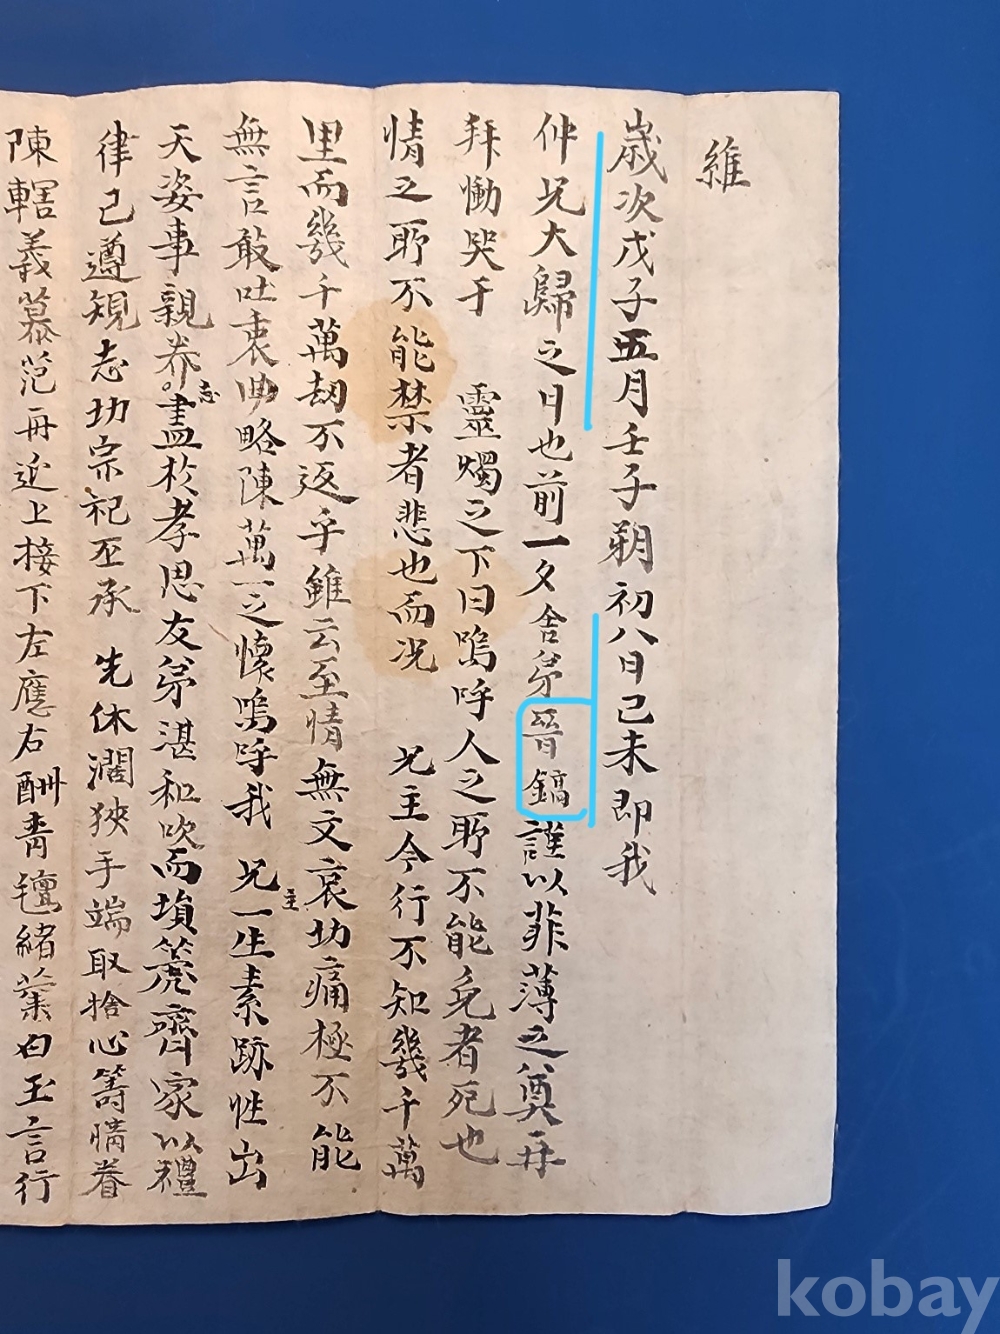 維
歲次戊子五月壬子朔初八日己未即我
仲兄大歸之日也前一夕舍弟晉鎬謹以菲薄之奠再
拜慟哭于 靈燭之下曰嗚呼人之所不能免者死也
情之所不能禁者悲也而况 兄主今行不知幾千萬
里而幾千萬劫不返乎雖云至情無文哀切痛極不能
無言敢吐衷曲略陳萬一之懷嗚呼我 兄主一生素跡性出
天姿事親養志盡於孝思友弟湛和吹而塤篪齊家以禮
律己遵規志切宗祀丕承 先休濶狹手端取捨心籌情眷
陳轄義慕范舟近上接下左應右酬青氊緒業白玉言行
kobay